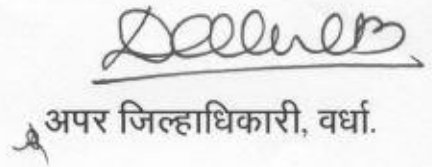 अपर जिल्हाधिकारी, वर्धा.